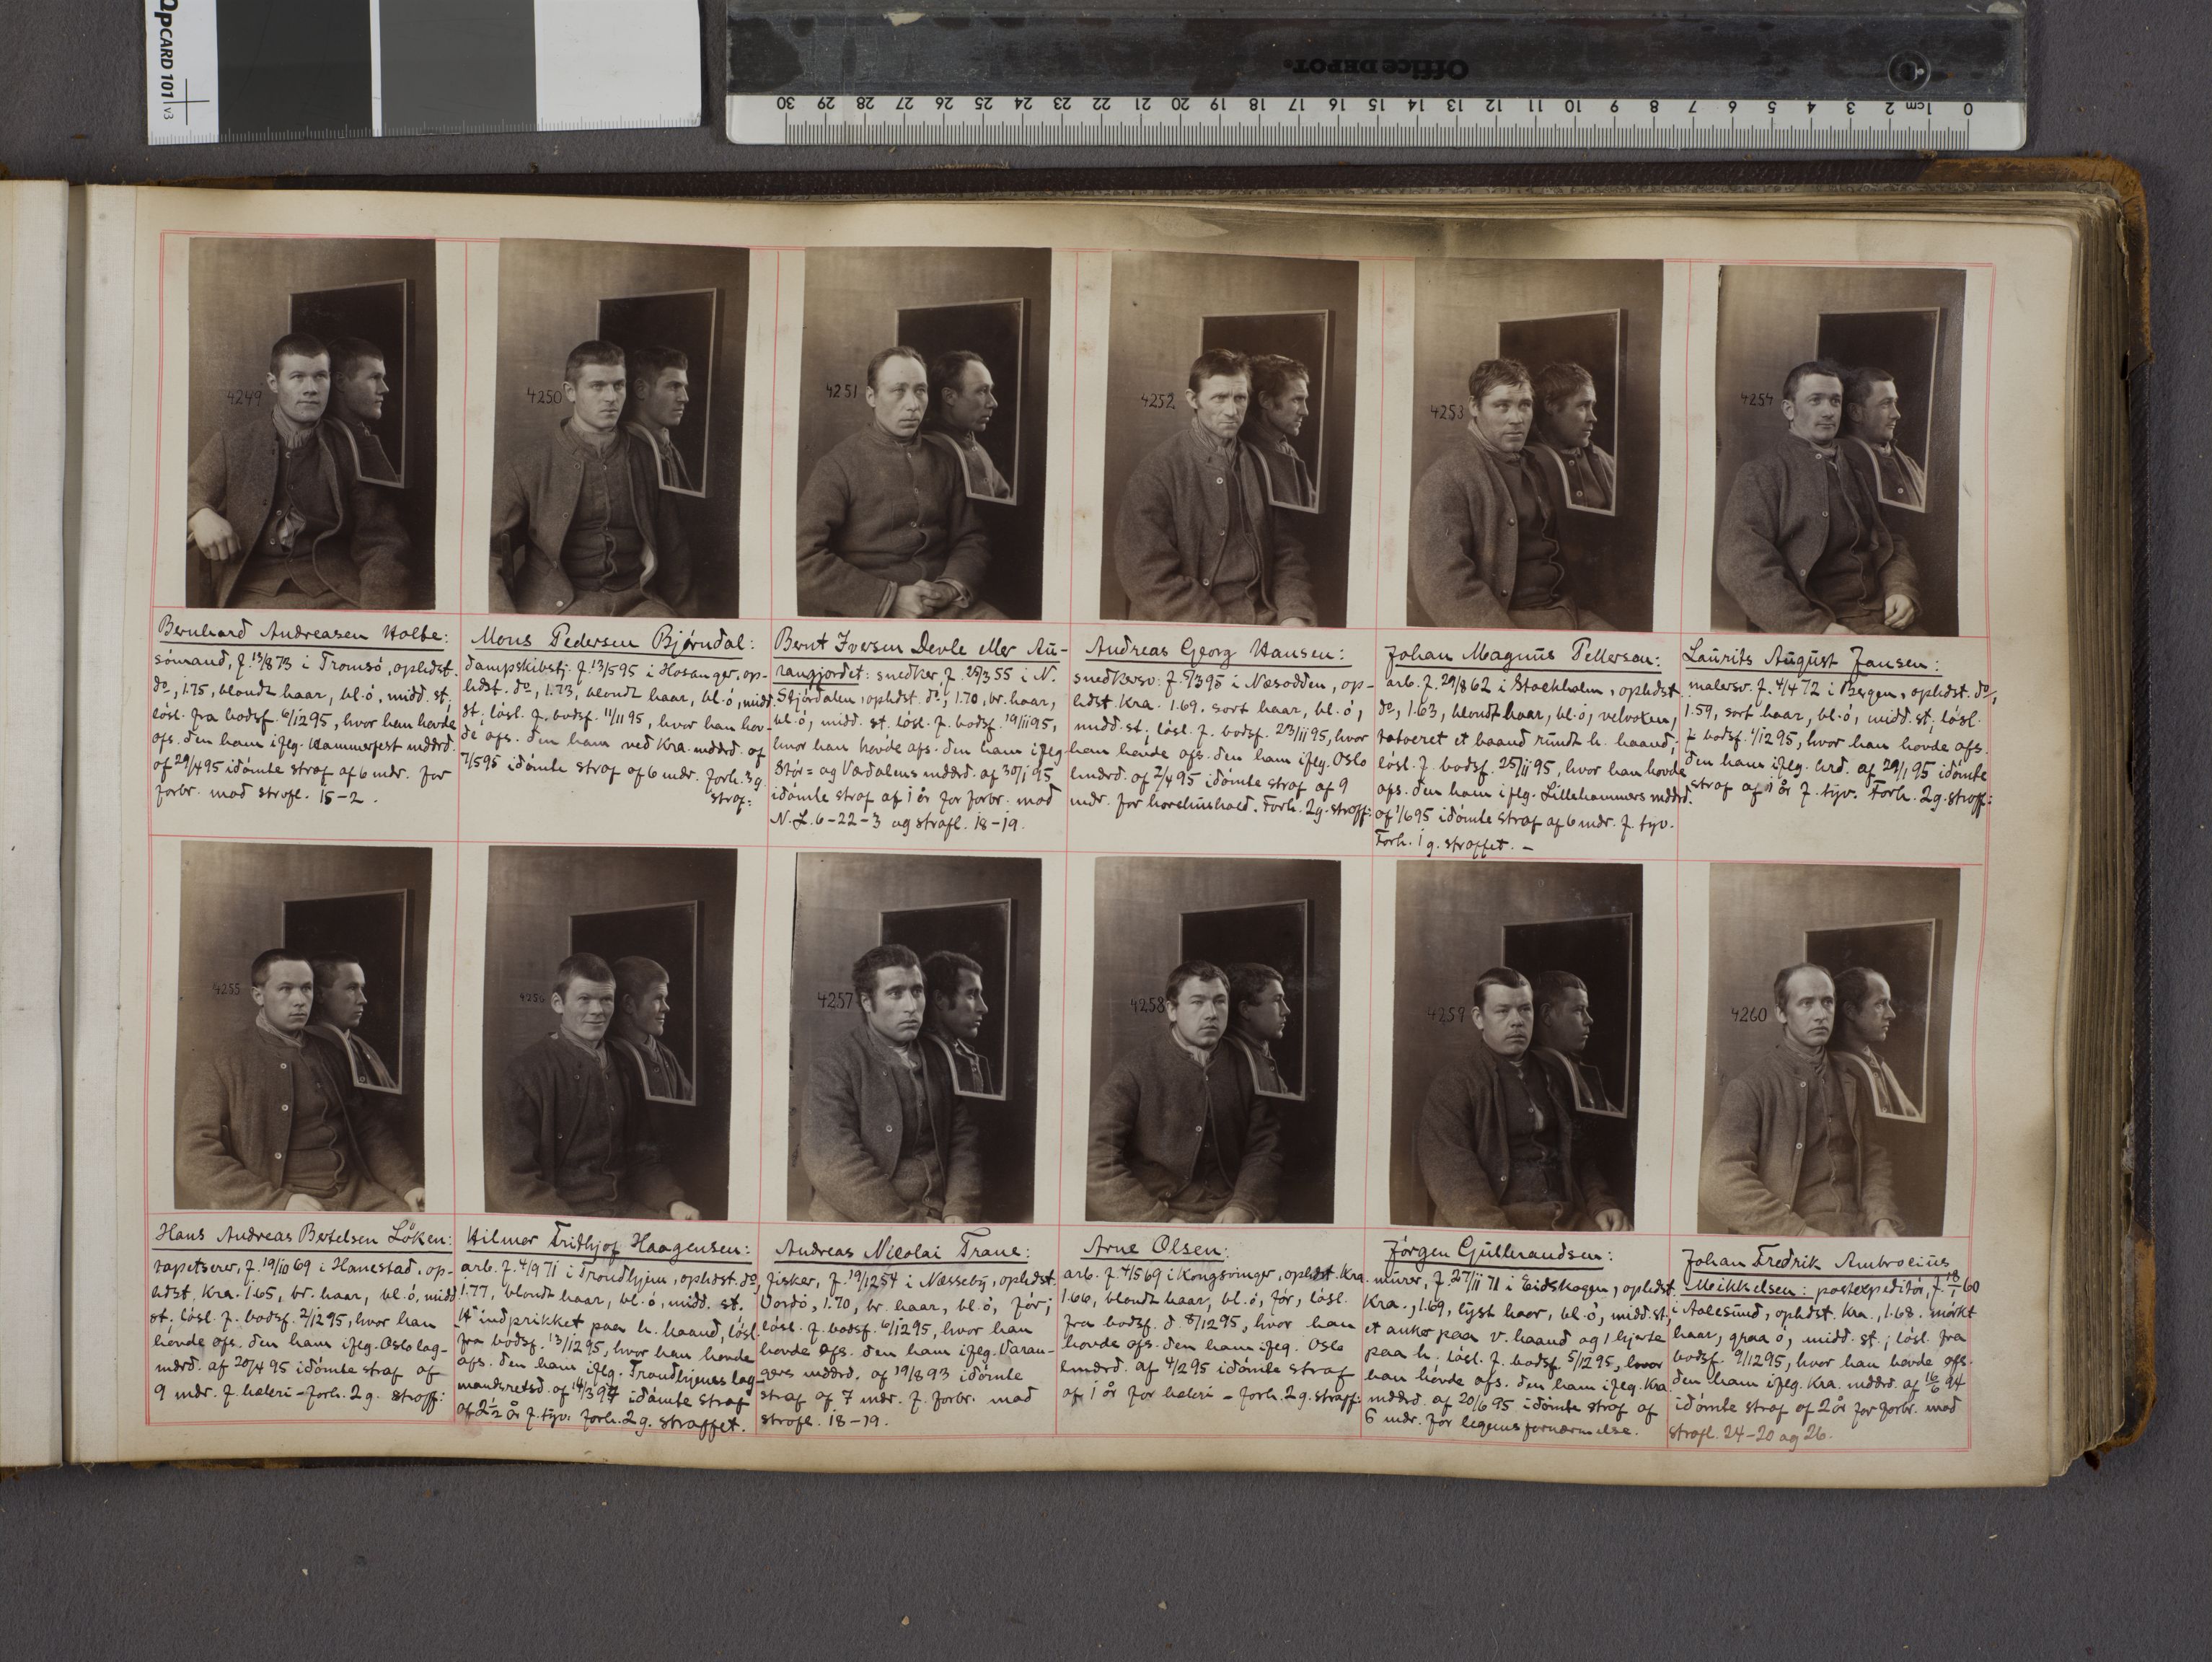 OpCARD 101 v3
Office DEPOT.
30 29 28 27 26 25 24 23 22 21 20 19 18 17 16 15 14 13 12 11 10 9 8 7 6 5 4 3 2 cm 1 0
4249
4250
4251
4252
4253
4254
Bernhard Andreasen Holte:
sómand, f. 13/8 73 i Tromsó, ophdst.
do, 1.75, blondt haar, bl. ó, midd. st,
lósl. fra bodsf. 6/12 95, hvor han hovde
afs. den ham iflg. Hammerfest mddrd.
af 29/4 95 idómte straf af 6 mdr. for
forbr. mod strafl. 15-2.
Mons Pedersen Bjørndal:
dampskibstj. f. 13/5 95 i Hosanger, op-
hdst. do, 1.73, blondt haar, bl. ó, midd.
st; lósl. f. bodsf. 11/11 95, hvor han hov-
de afs. den ham ved Kra. mddrd. af
7/5 95 idómte straf af 6 mdr. forh. 3 g.
straf:
Bernt Iversen Devle eller Au-
rangjordet: snedker, f. 25/3 55 i N.
Stjórdalen, ophdst. do, 1.70, br. haar,
bl. ó, midd. st. lósl. f. bodsf. 19/11 95,
hvor han hovde afs. den ham iflg
Stór= og Værdalens mddrd. af 30/1 95
idómte straf af 1 år for forbr. mod
N. L. 6-22-3 og strafl. 18-19.
Andreas Georg Hansen:
snedkersv. f. 5/3 95 i Næsodden, op-
hdst. Kra. 1.69, sort haar, bl. ó,
midd. st; lósl. f. bodsf. 23/11 95, hvor
han hovde afs. den ham iflg. Oslo
lmdrd. af 2/4 95 idómte straf af 9
mdr. for horelivshold. Forh. 2 g. straff:
Johan Magnus Pettersøn:
arb. f. 29/8 62 i Stockholm, ophdst
do, 1.63, blondt haar, bl. ó, velvoxen,
tatoveret et baand rundt h. haand;
lósl. f. bodsf. 25/11 95, hvor han hovde
afs. den ham iflg. Lillehammers mddrd.
af 1/6 95 idómte straf af 6 mdr. f. tyv.
Forh. 1 g. straffet. -
Laurits August Jansen:
malersv. f. 4/4 72 i Bergen, ophdst. do,
1.59, sort haar, bl. ó, midd. st; lósl.
f. bodsf. 1/12 95, hvor han hovde afs.
den ham iflg. hrd. af 29/1 95 idómte
straf af 1 år f. tyv. Forh. 2 g. straff:
4255
4256
4257
4258
4259
4260
Hans Andreas Bertelsen Lóken:
tapetserer, f. 19/10 69 i Hanestad, op-
hdst. Kra. 1.65, br. haar, bl. ó, midd
st; lósl. f. bodsf. 2/12 95, hvor han
hovde afs. den ham iflg. Oslo lag-
mdrd. af 20/4 95 idómte straf af
9 mdr. f. hæleri - forh. 2 g. straff:
Hilmer Fridhjof Haagensen:
arb. f. 4/9 71 i Trondhjem, ophdst. do,
1.77, blondt haar, bl. ó, midd. st.
"H" indprikket paa h. haand, lósl.
fra bodsf. 13/12 95, hvor han hovde
afs. den ham iflg. Trondhjems lag-
mandsretsd. af 14/3 94 idómte straf
af 2 1/2 år f. tyv. forh. 2 g. straffet.
Andreas Nicolai Trane:
fisker, f. 19/12 54 i Næsseby, ophdst.
Vardó, 1.70, br. haar, bl. ó, fór;
lósl. f. bodsf. 6/12 95, hvor han
hovde afs. den ham iflg. Varan-
gers mddrd. af 19/8 93 idómte
straf af 7 mdr. f. forbr. mod
strafl. 18-19.
Arne Olsen:
arb. f. 4/5 69 i Kongsvinger, ophdst. Kra.
1.66, blondt haar, bl. ó, fór, lósl.
fra bodsf. d. 8/12 95, hvor han
hovde afs. den ham iflg. Oslo
lmdrd. af 4/2 95 idómte straf
af 1 år for hæleri - forh. 2 g. straff:
Jórgen Gulbrandsen:
murer, f. 27/11 71 i Eidskogen, ophdst.
Kra., 1.69, lyst haar, bl. ó, midd. st;
et anker paa v. haand og 1 hjerte
paa h; lósl. f. bodsf. 5/12 95, hvor
han hovde afs. den ham iflg. Kra.
mddrd. af 20/6 95 idómte straf af
6 mdr. for legemsfornærmelse.
Johan Fredrik Ambrocius
Mikkelsen: postexpeditór, f. 18/1 60
i Aalesund, ophdst. Kra., 1.68. mórkt
haar, graa ó, midd. st; lósl. fra
bodsf. 9/12 95, hvor han hovde afs.
den ham iflg. Kra. mddrd. af 16/6 94
idómte straf af 2 år for forbr. mod
strafl. 24-20 og 26.